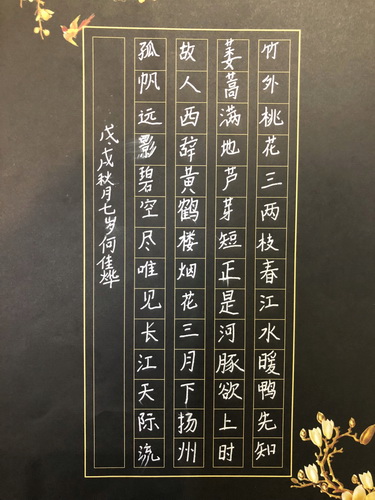 竹外桃花三两枝春江水暖鸭先知
蒌蒿满地芦芽短正是河豚欲上时
故人西辞黄鹤楼烟花三月下扬州
孤帆远影碧空尽唯见长江天际流
戊戌秋月七岁何佳烨